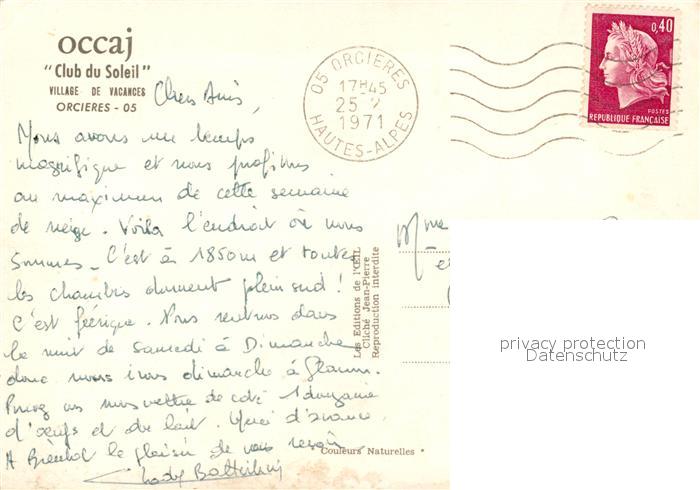 occaj
"Club du Soleil"
VILLAGE DE VACANCES
ORCIERES - 05
05 ORCIERES
17H45
25
1971
HAUTES-ALPES
0,40
POSTES
REPUBLIQUE FRANÇAISE
Chers Amis,
Nous avons un temps
magnifique et nous profitons
au maximum de cette semaine
de neige. Voilà l'endroit où nous
sommes - C'est à 1850m et toutes
les chambres donnent plein sud !
C'est féérique. Nous rentrons dans
la nuit de samedi à Dimanche
donc nous irons dimanche à
nous mettre de coté 1 douzaine
d'œufs et du lait. Merci d'avance.
A Bientôt le plaisir de vous revoir
Mme
et
Les Editions de l'ŒIL
Cliché Jean-Pierre
Reproduction interdite
Couleurs Naturelles
privacy protection
Datenschutz